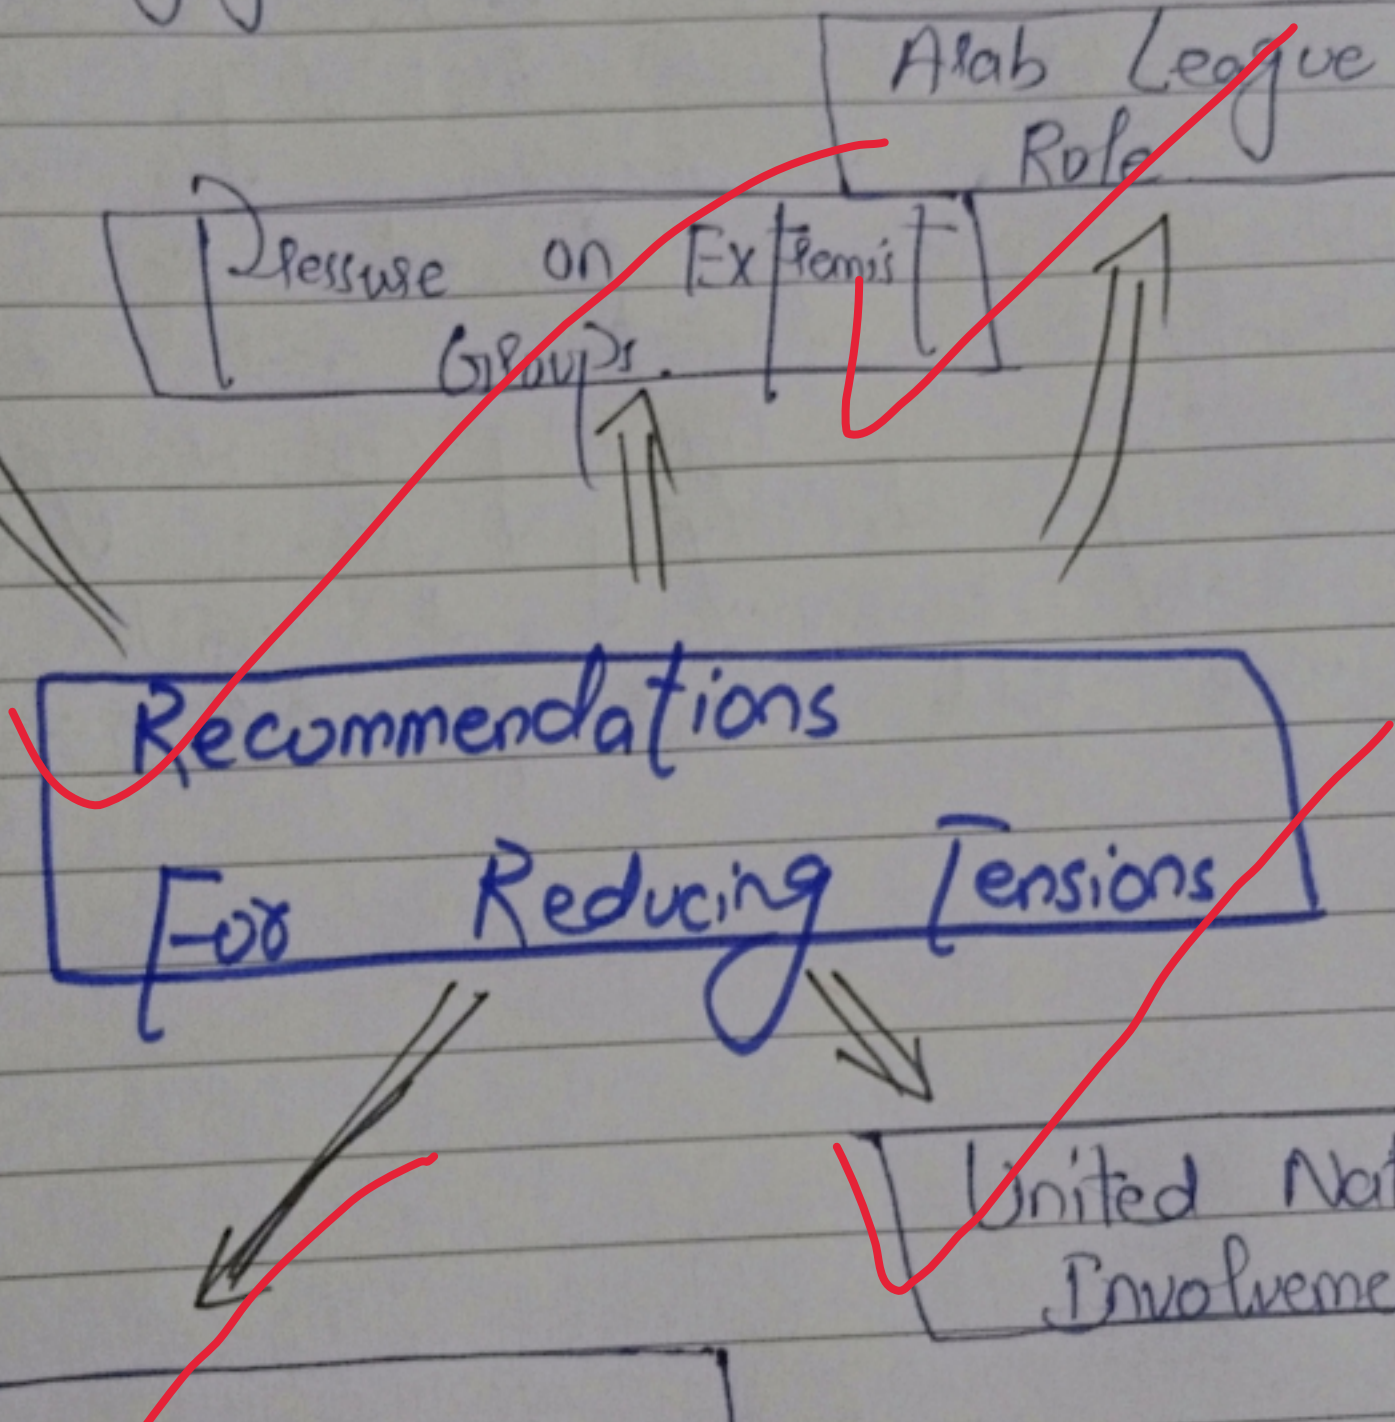 Arab League
Role
Pressure on Extremist
Groups.
Recommendations
For Reducing Tensions
United Nat
Involveme